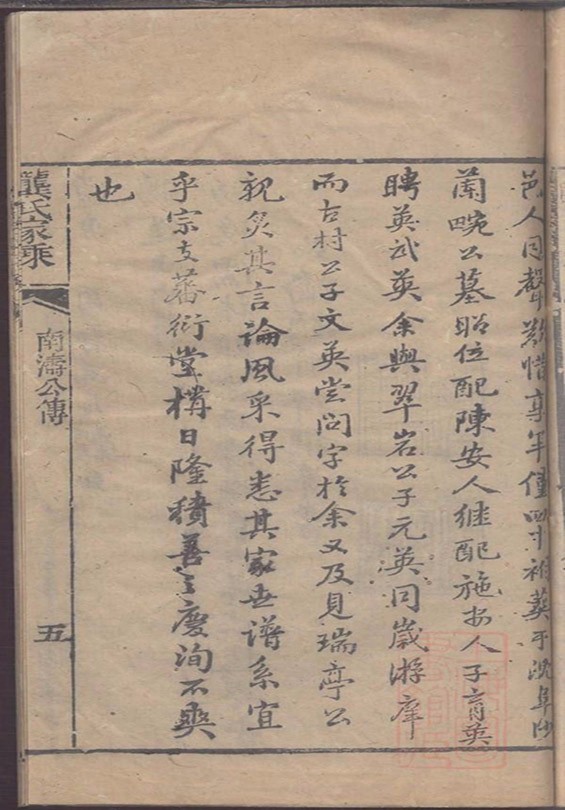 邑人同聲歎惜享年僅四十祔葬于沈阜沙
蘭畹公墓昭位配陳安人继配施安人子育英
聘英武英余與翠岩公子元英同歲游庠
而古村公子文英嘗问字於余又及見瑞亭公
親炙其言論風采得悉其家世谱系宜
乎宗支蕃衍堂構日隆積善之慶洵不爽
也
龔氏家乘
南濤公傳
五